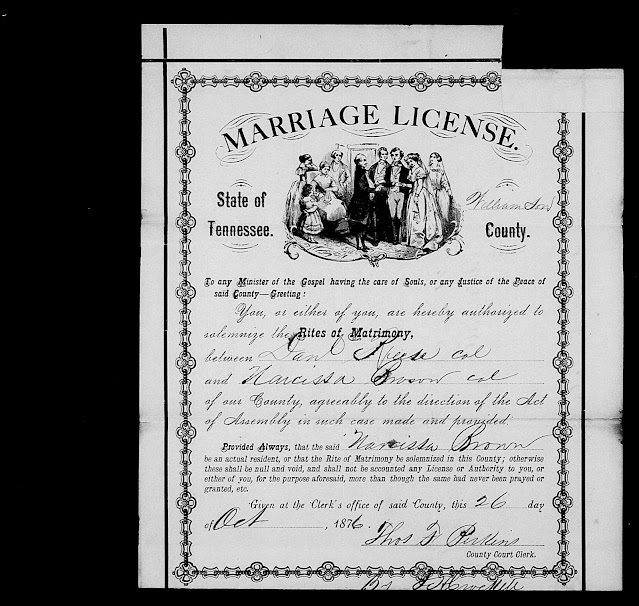 MARRIAGE LICENSE.
State of Tennessee.
Williamson County.
To any Minister of the Gospel having the care of Souls, or any Justice of the Peace of
said County—Greeting:
You, or either of you, are hereby authorized to
solemnize the Rites of Matrimony,
between Danl Reese col
and Narcissa Brown col
of our County, agreeably to the direction of the Act
of Assembly in such case made and provided
Provided Always, that the said Narcissa Brown
be an actual resident, or that the Rite of Matrimony be solemnized in this County; otherwise
these shall be null and void, and shall not be accounted any License or Authority to you, or
either of you, for the purpose aforesaid, more than though the same had never been prayed or
granted, etc.
Given at the Clerk's office of said County, this 26 day
of Oct, 1876.
Thos F Perkins
County Court Clerk.